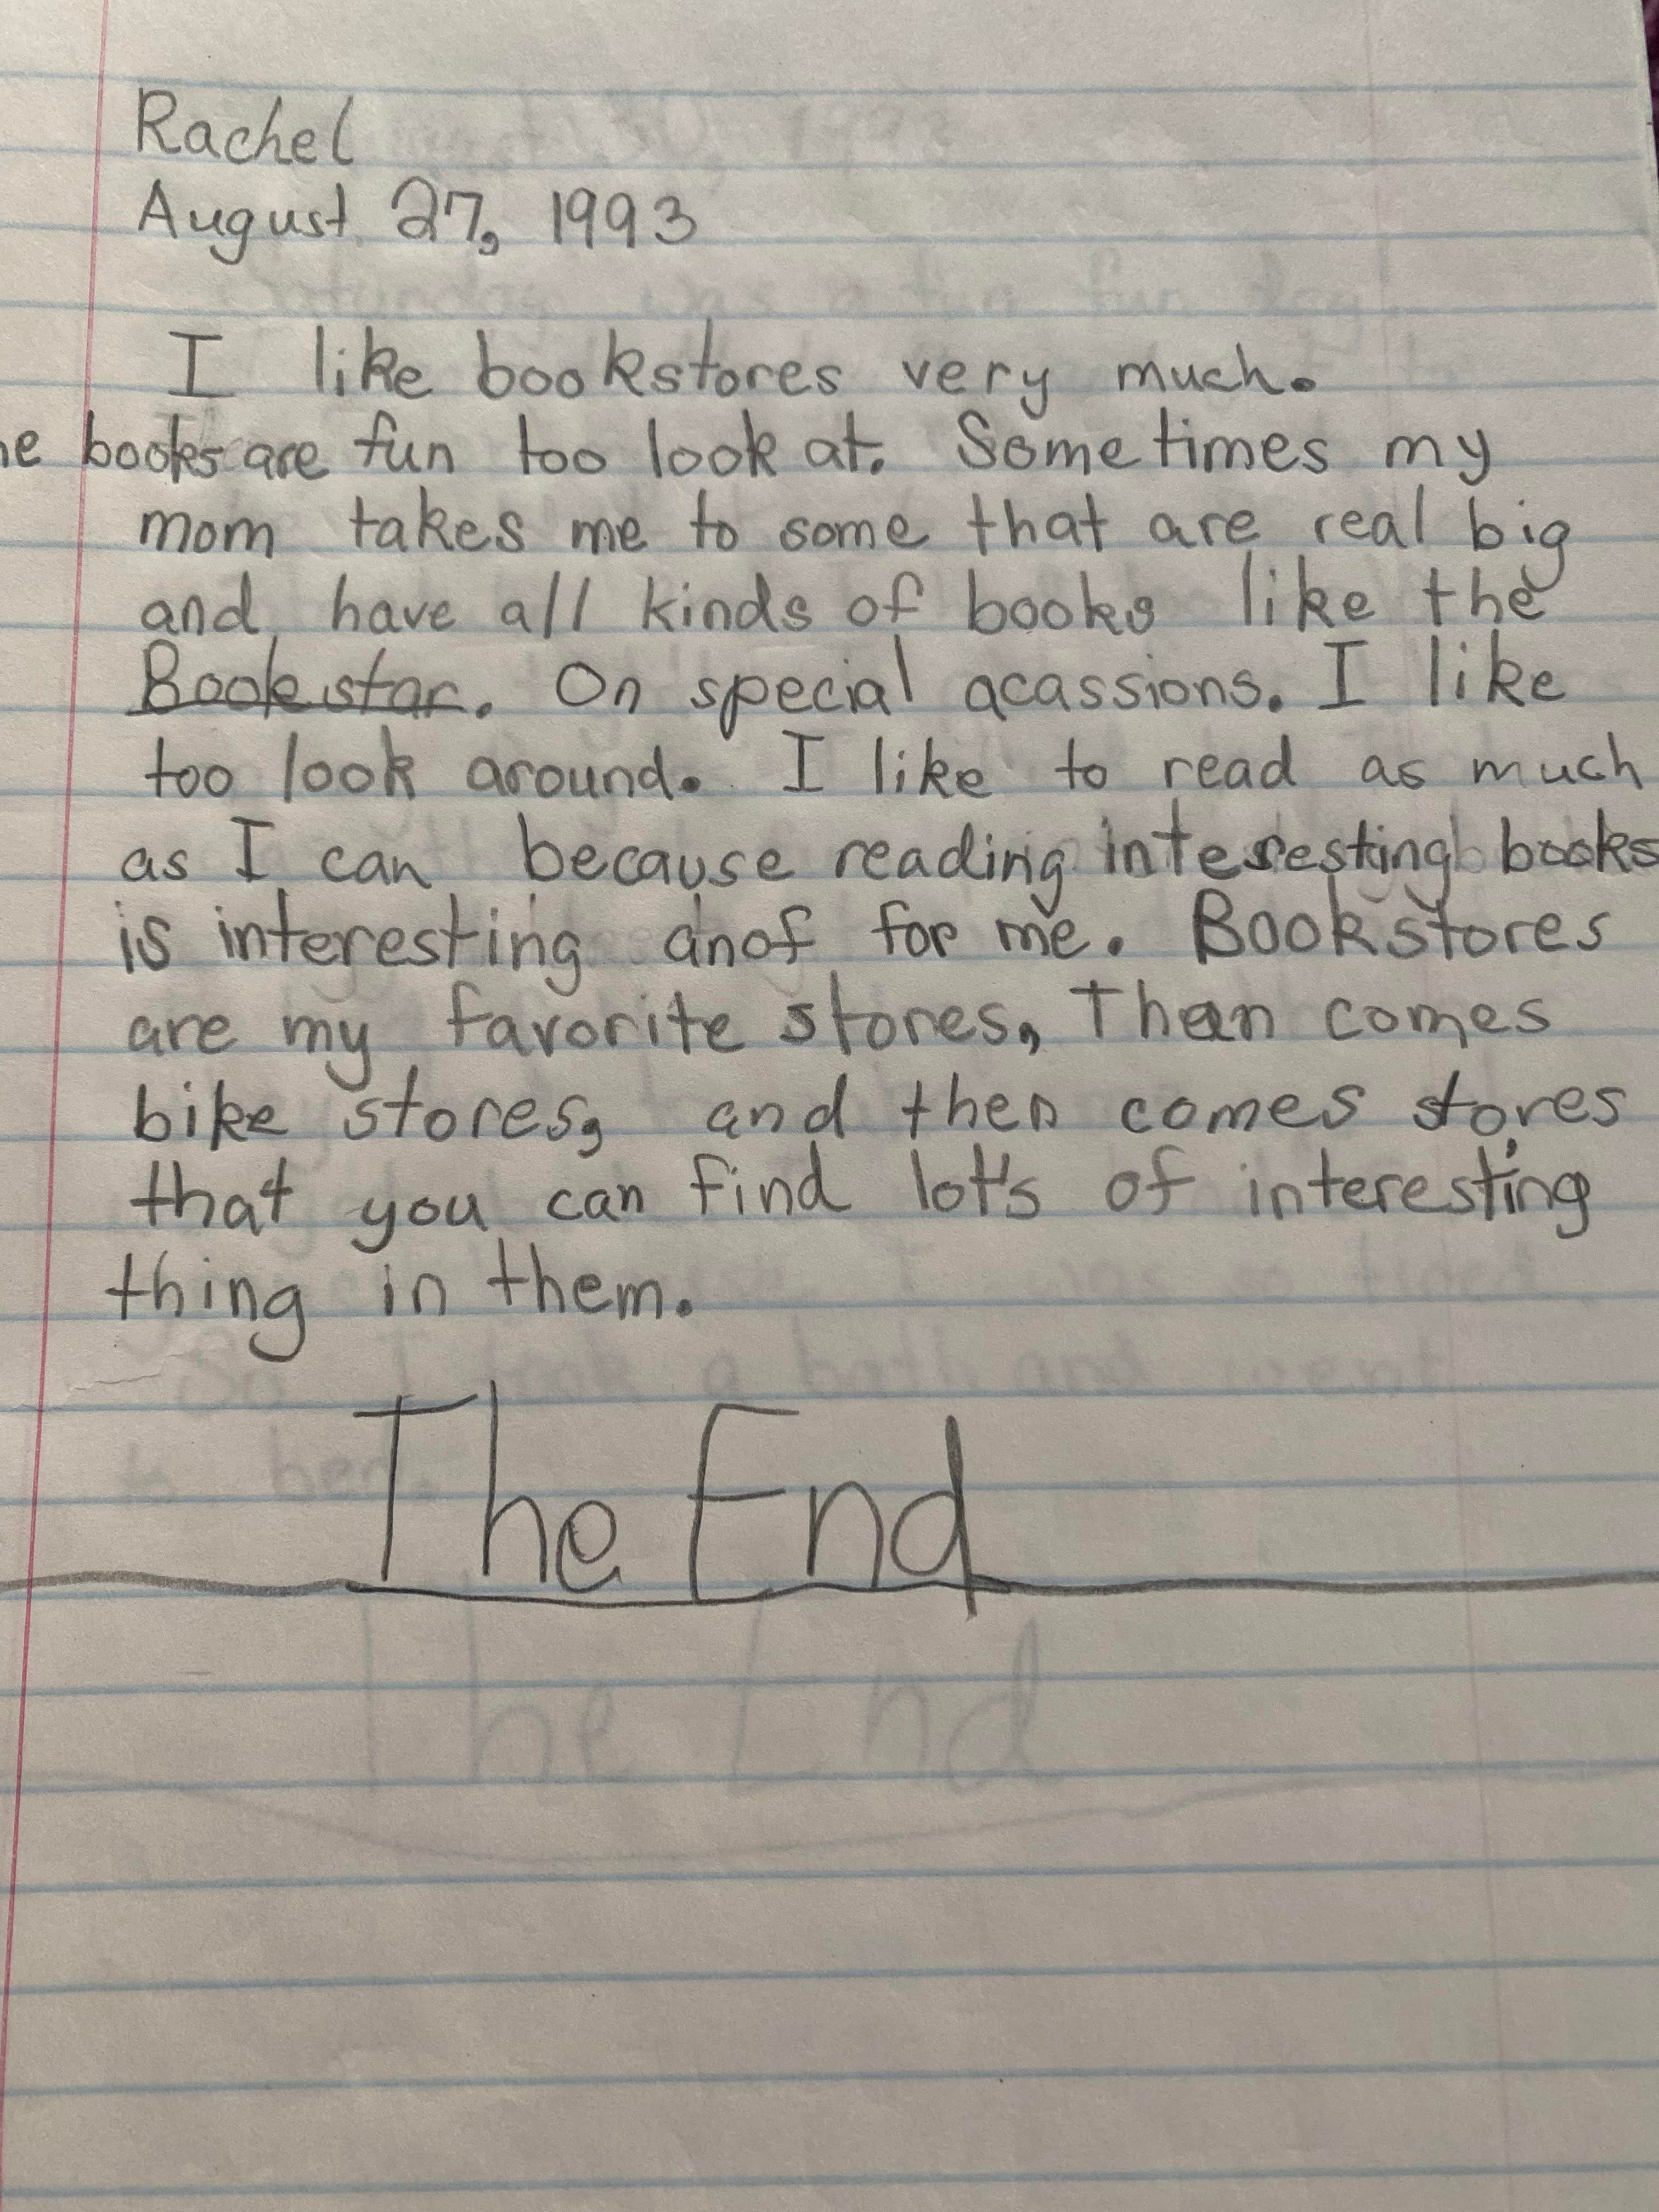 Rachel
August 27, 1993
I like bookstores very much.
he books are fun too look at. Sometimes my
mom takes me to some that are real big
and have all kinds of books like the
Bookstar. On special acassions. I like
too look around. I like to read as much
as I can because reading interesting books
is interesting anof for me. Bookstores
are my favorite stores, Then comes
bike stores, and then comes stores
that you can find lot's of interesting
thing in them.
The End
The End